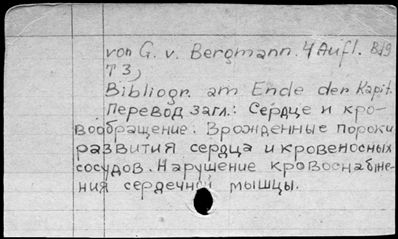 von G. v. Bergmann. 4 Aufl. Bd9
T 3,
Bibliogr. am Ende der Kapit.
Перевод загл.: Сердце и кро-
вообращение. Врожденные пороки
развития сердца и кровеносных
сосудов. Нарушение кровоснабже-
ния сердечной мышцы.